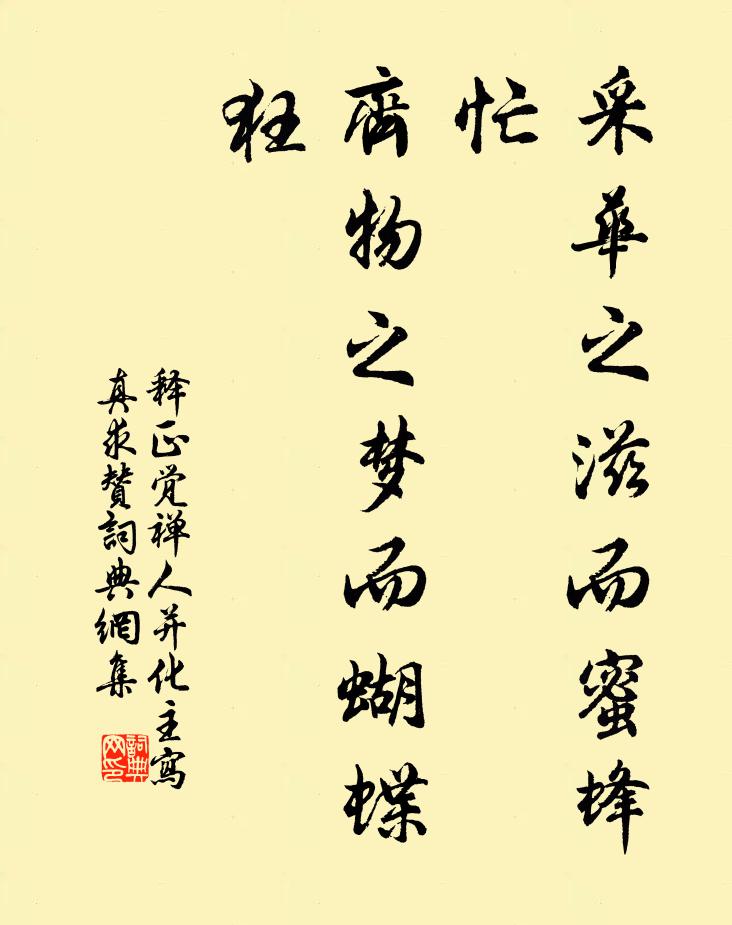 采華之滋而蜜蜂
忙
齊物之梦而蝴蝶
狂
释正觉禅人并化主寫
真求赞詞典網集
詞典網印